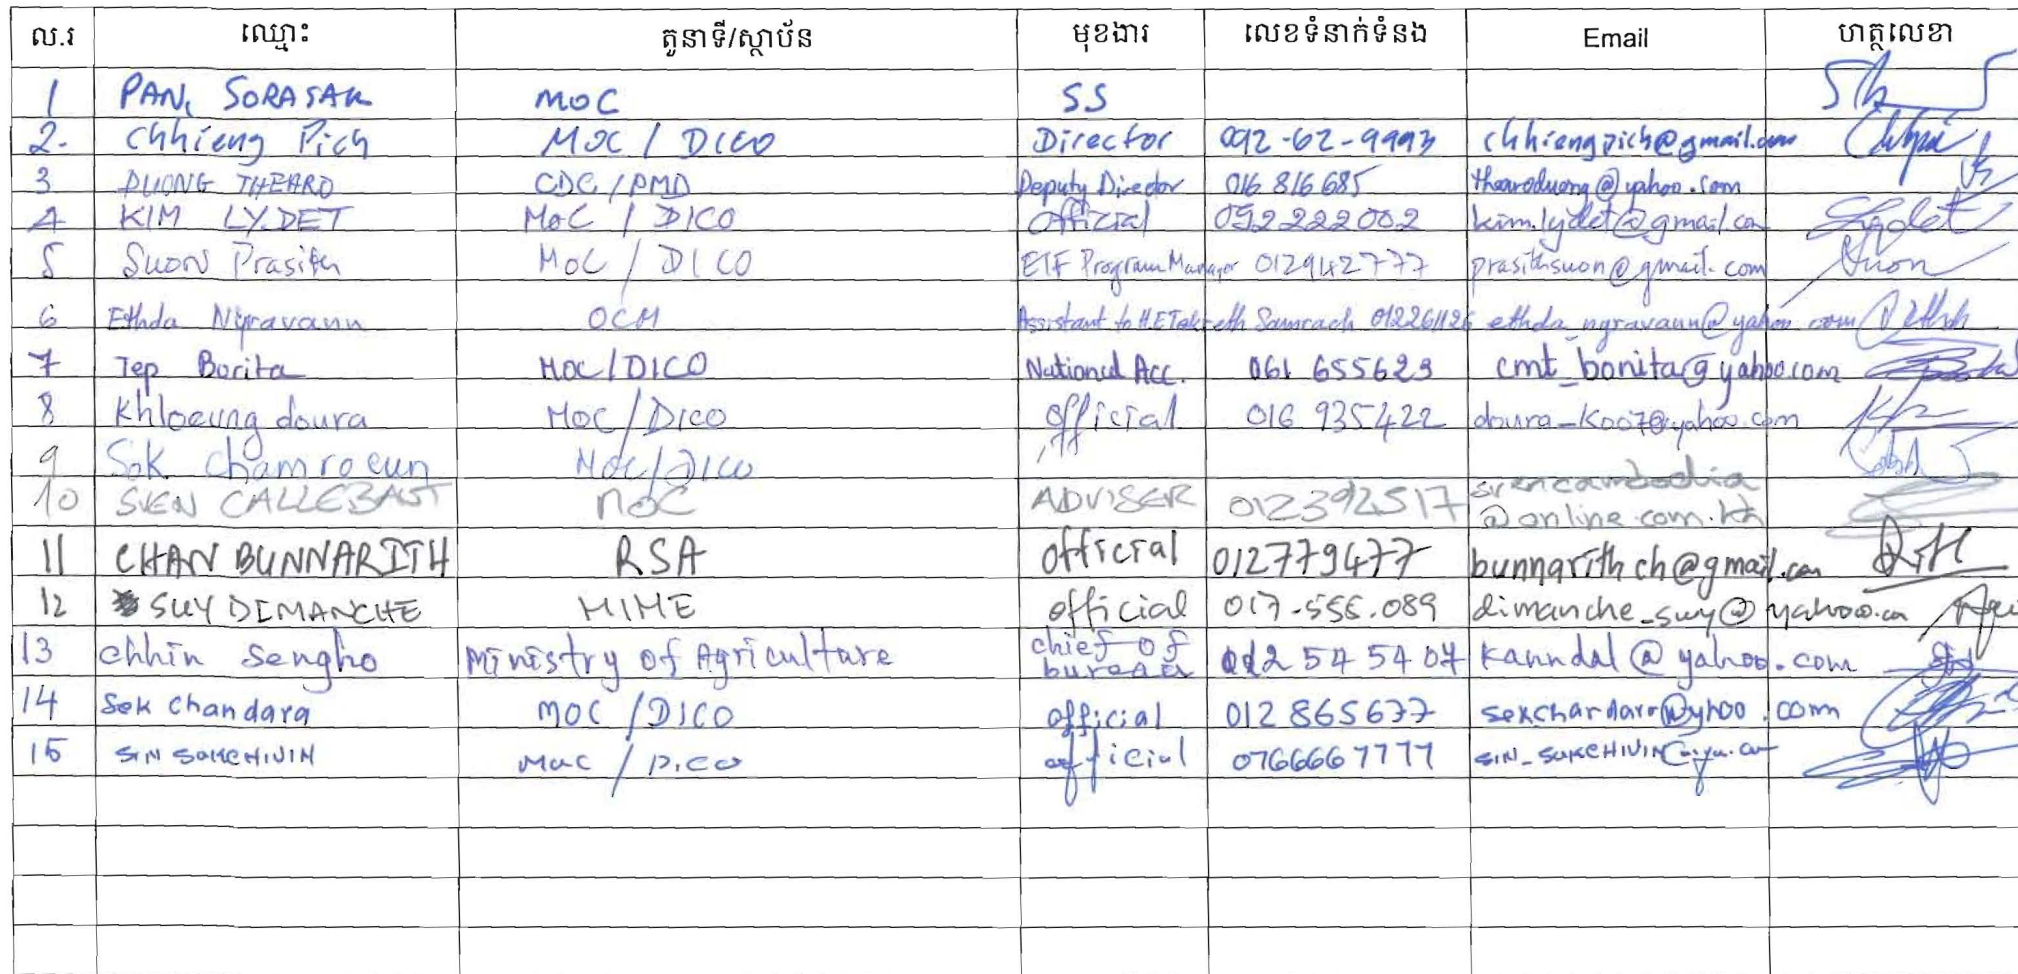 ល.រ ឈ្មោះ តួនាទី/ស្ថាប័ន មុខងារ លេខទំនាក់ទំនង Email ហត្ថលេខា
1 PAN, SORASAK MOC SS
2- Chhieng Pich MOC / DICO Director 092-62-9993 chhiengpich@gmail.com
3 DUONG THEARO CDC/PMD Deputy Director 016 816 685 thearoduong@yahoo.com
4 KIM LYDET MoC / DICO Official 092222002 kim.lydet@gmail.com
5 Suon Prasith MoC / DICO EIF Program Manager 012942777 prasithsuon@gmail.com
6 Ethda Ngravann OCM Assistant to H.E Tekreth Samrach 012261126 ethda_ngravann@yahoo.com
7 Tep Borita MOC/DICO National Acc. 061 655623 cmt_bonita@yahoo.com
8 Khloeung doura MOC/DICO official 016 935422 doura_k007@yahoo.com
9 Sok Chamroeun MOC/DICO
10 SVEN CALLEBAUT MOC ADVISER 012392517 svencambodia
@online.com.kh
11 CHAN BUNNARITH RSA official 012779477 bunnarith.ch@gmail.com
12 SUY DIMANCHE MIME official 017-555.089 dimanche_suy@yahoo.co
13 Chhin Sengho Ministry of Agriculture chief of
bureau 012 54 54 07 kanndal@yahoo.com
14 Sok Chandara MOC /DICO official 012 865677 sekchandara@yhoo.com
15 SIN SOKCHIVIN MOC / DICO official 0766667777